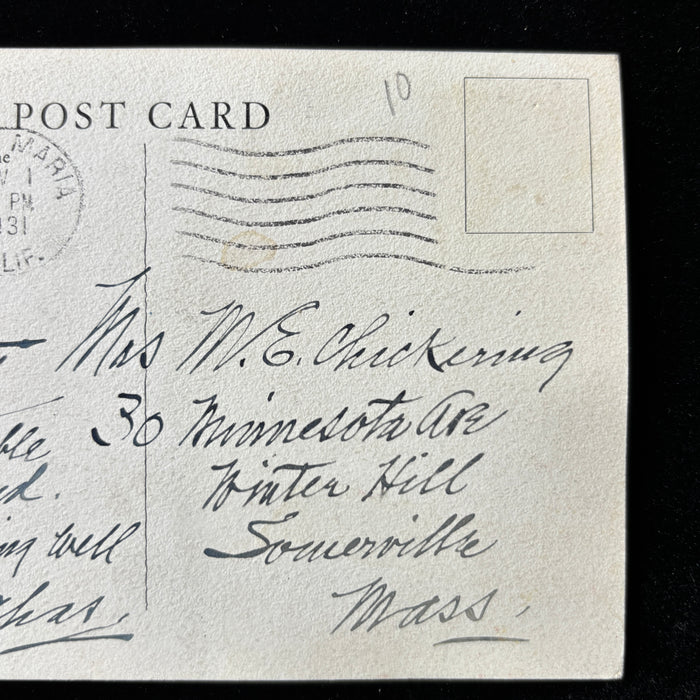 POST CARD
10
MARIA
1
PM
1931
CALIF.
Mrs W. E. Chickering
30 Minnesota Ave
Winter Hill
Somerville
Mass.
well
Chas.